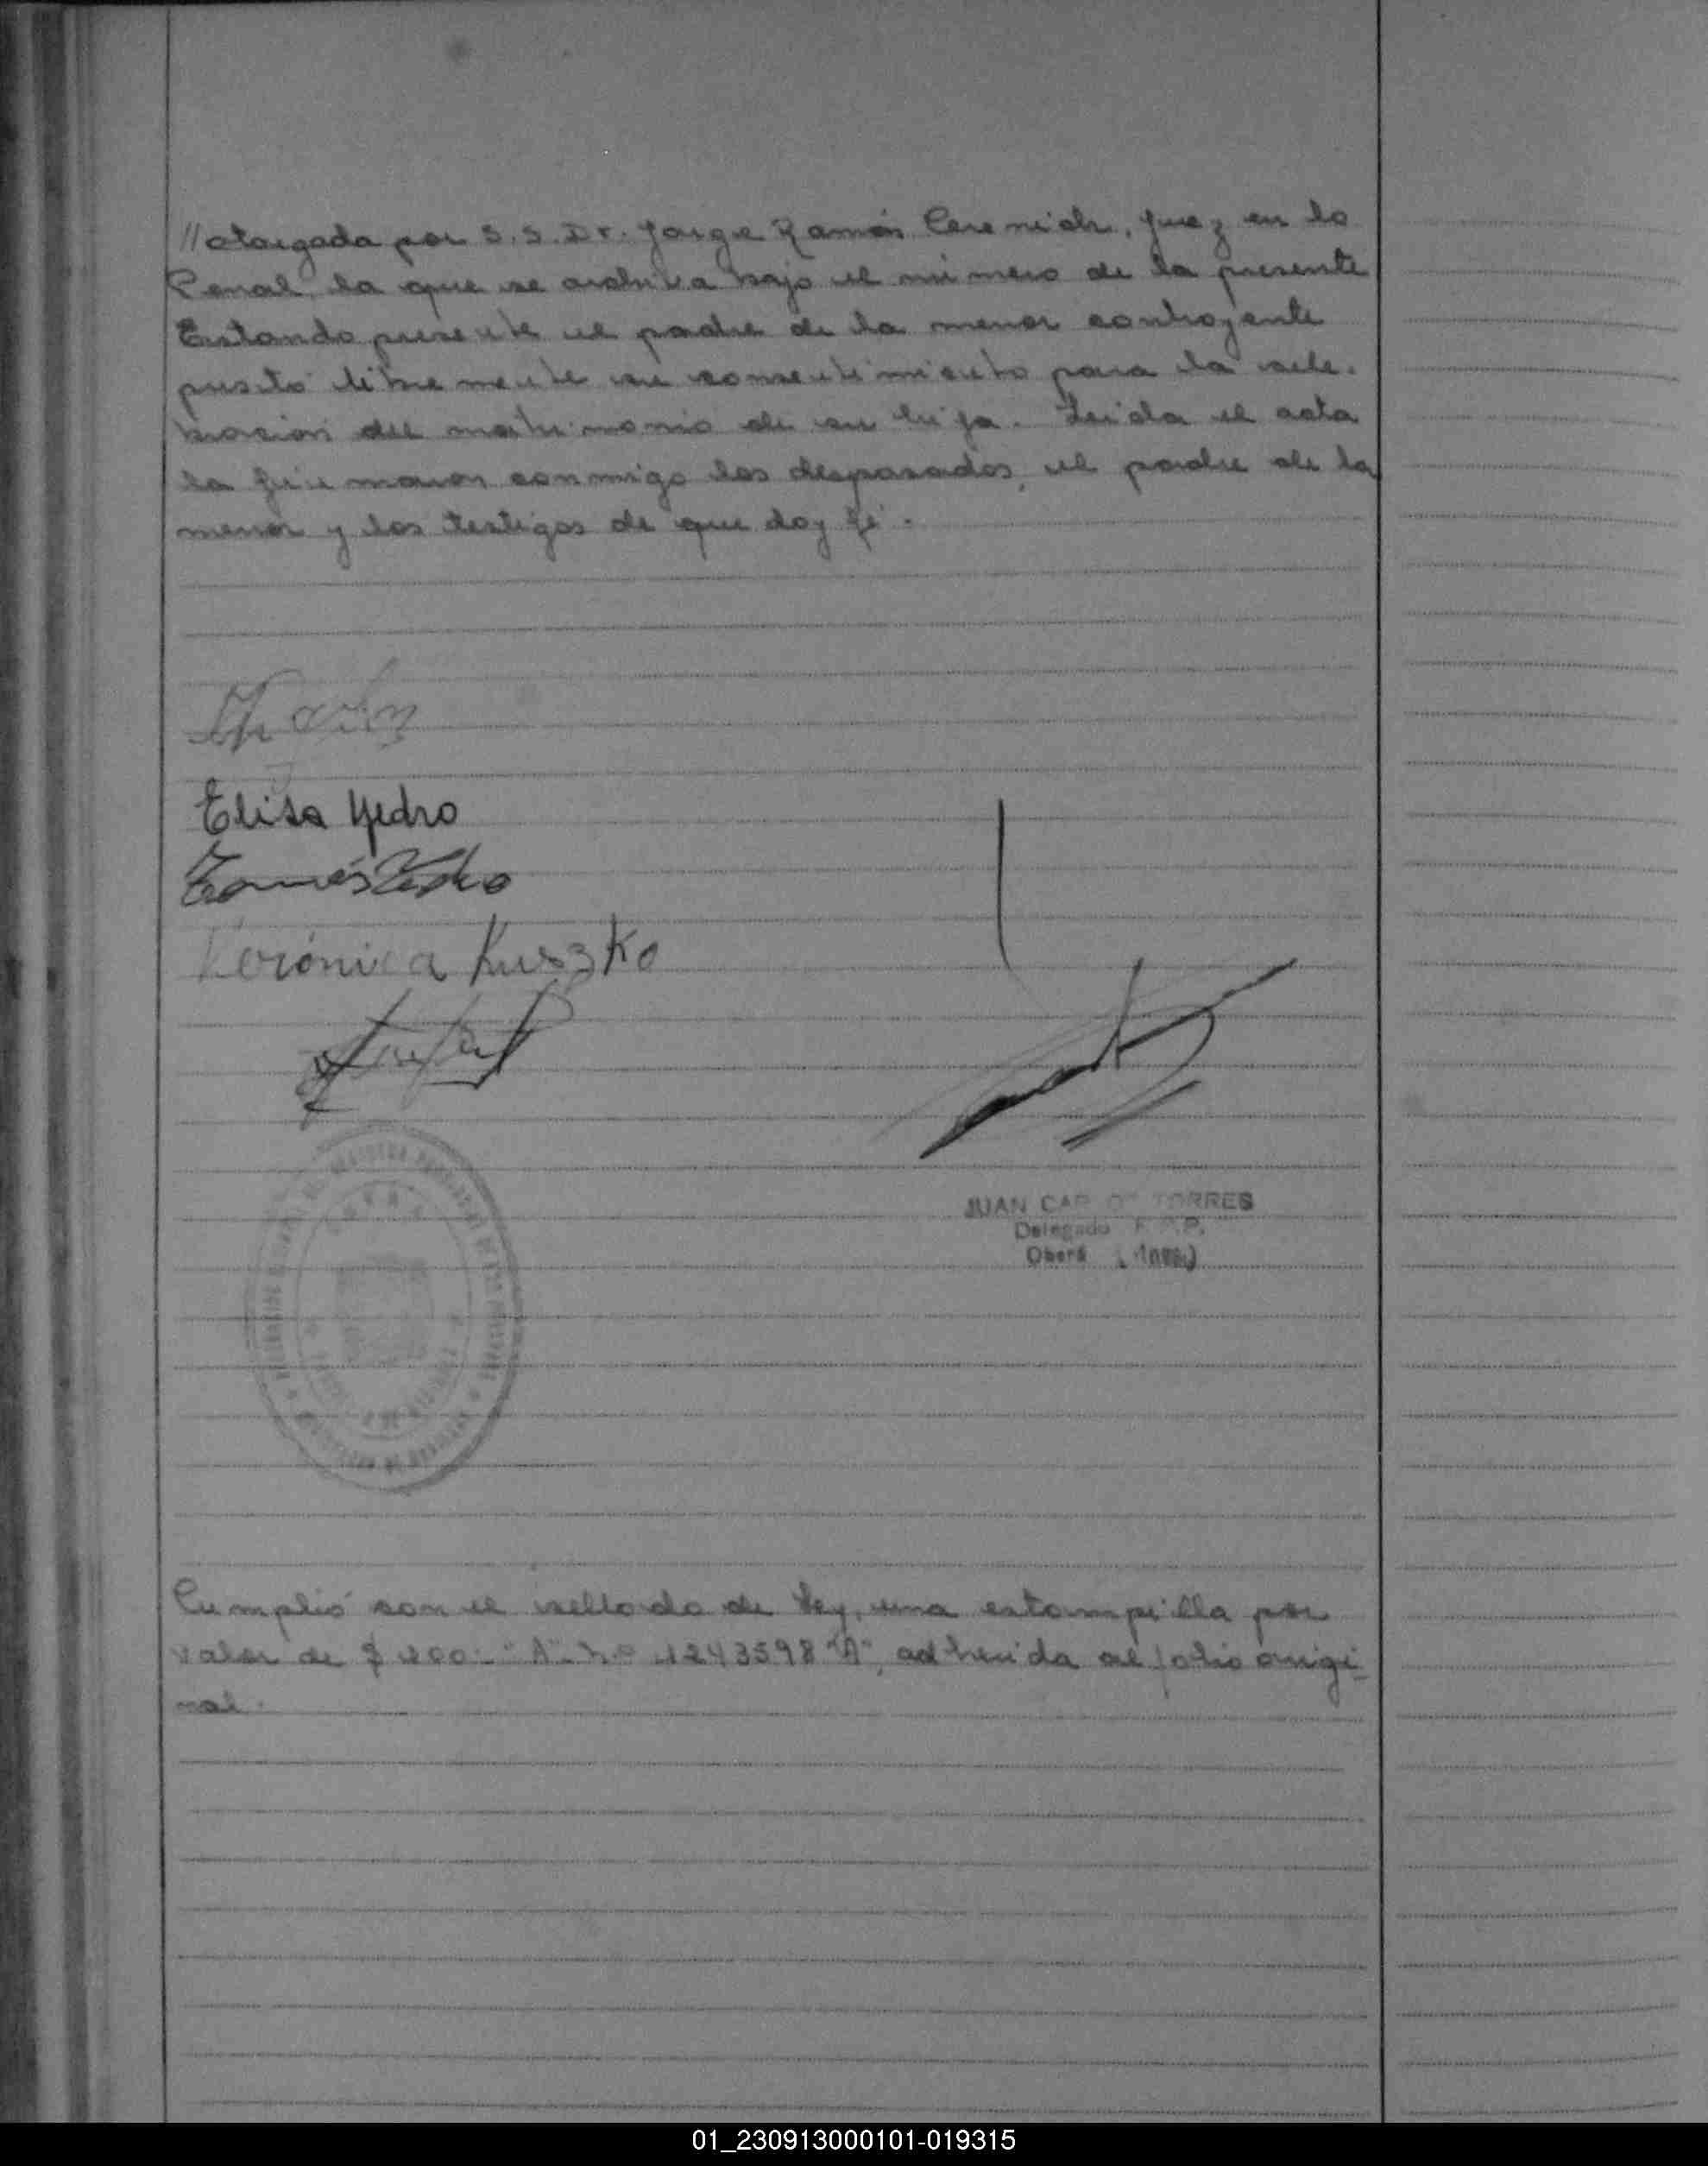 //otorgada por S.S. Dr. Jorge Ramón Cerenich, Juez en lo
Penal, la que se archiva bajo el número de la presente
Estando presente el padre de la menor contrayente
prestó libremente su consentimiento para la cele-
bración del matrimonio de su hija. Leída el acta
la firmaron conmigo los desposados, el padre de la
menor y los testigos de que doy fé.
Elisa Yedro
Tomás Yedro
Verónica Kuszko
JUAN CAR OS TORRES
Delegado R. P.P.
Oberá (Mnes.)
Cumplió con el sellado de Ley, una estampilla por
valor de $ 200.- "A" Nº 1243598 "A", adherida al folio origi-
nal.
01_230913000101-019315